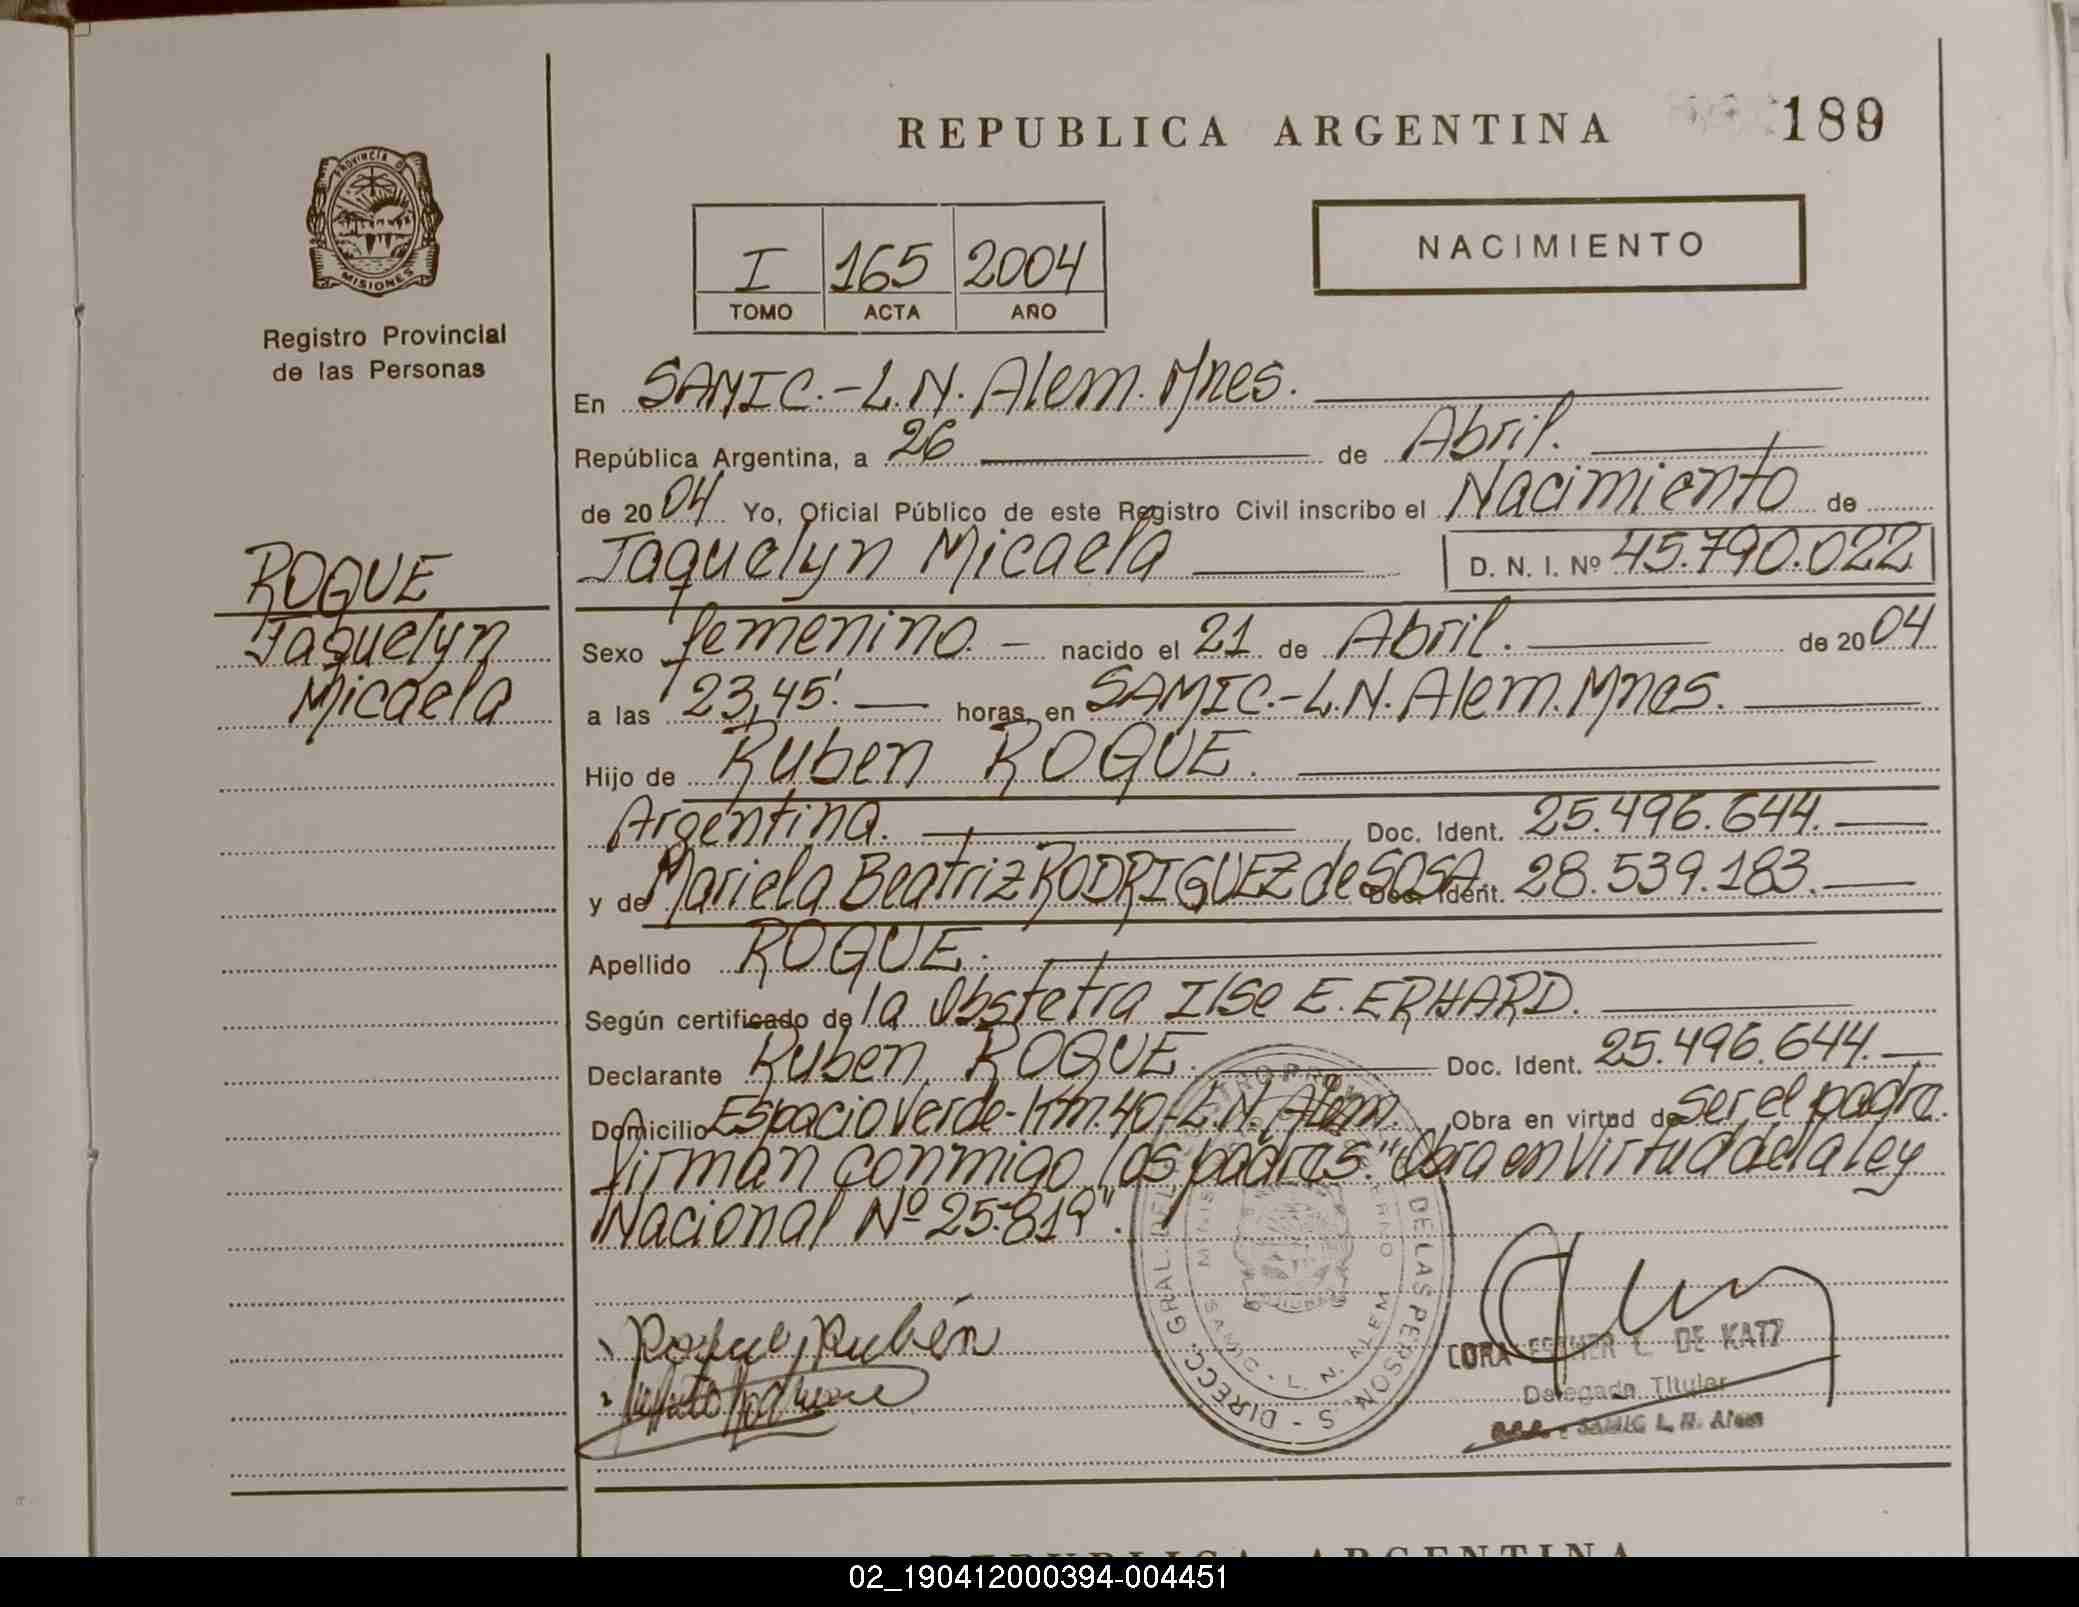 REPUBLICA ARGENTINA
189
PROVINCIA DE
MISIONES
Registro Provincial
de las Personas
I 165 2004
TOMO ACTA AÑO
NACIMIENTO
En SAMIC.-L.N. Alem. Mnes.
República Argentina, a 26 de Abril.
de 2004 Yo, Oficial Público de este Registro Civil inscribo el Nacimiento de
Jaquelyn Micaela D. N. I. Nº 45.790.022
ROQUE
Jaquelyn
Micaela
Sexo femenino. nacido el 21 de Abril. de 2004
a las 23,45'. horas, en SAMIC.-L.N. Alem. Mnes.
Hijo de Ruben ROQUE.
Argentina. Doc. Ident. 25.496.644.
y de Mariela Beatriz RODRIGUEZ de SOSA Doc. Ident. 28.539.183.
Apellido ROQUE.
Según certificado de la Obstetra Ilse E. ERHARD.
Declarante Ruben ROQUE. Doc. Ident. 25.496.644.
Domicilio Espacio Verde-Km.40-L.N. Alem. Obra en virtud de ser el padre.
firman conmigo los padres."Obra en virtud de la ley
Nacional Nº 25.819".
Roque, Rubén
DIRECC. GRAL. DEL REGISTRO PROV. DE LAS PERSONAS
SAMIC - L. N. ALEM
CORA ESTHER L. DE KATZ
Delegada Titular
SAMIC L. N. Alem
REPUBLICA ARGENTINA
02_190412000394-004451